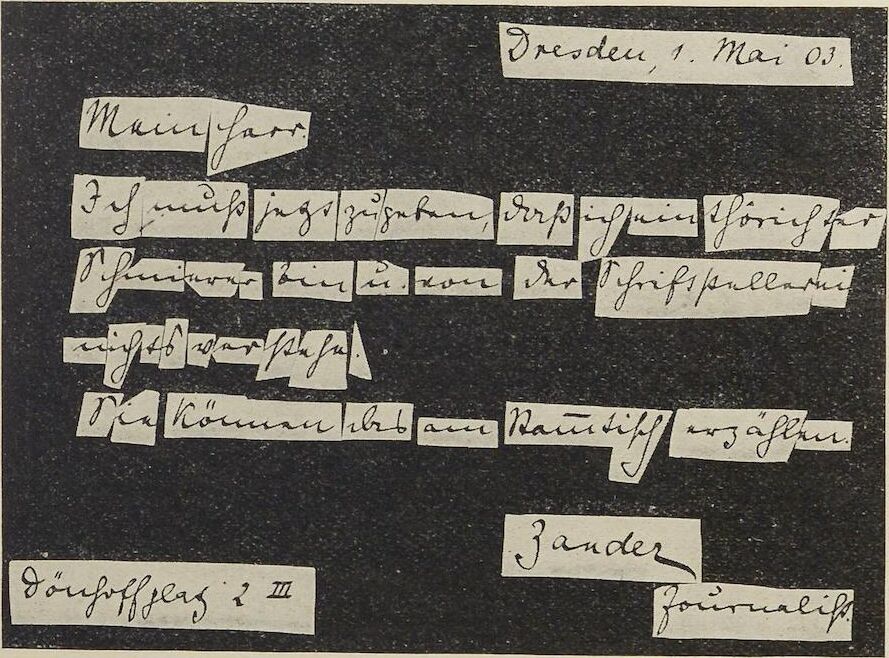 Dresden, 1. Mai 03.
Mein Herr.
Ich muß jetzt zugeben, daß ich ein thörichter
Schmierer bin u. von der Schriftstellerei
nichts verstehe.
Sie können das am Stam̅tisch erzählen.
Zander
Dönhoffplatz 2 III
Journalist.